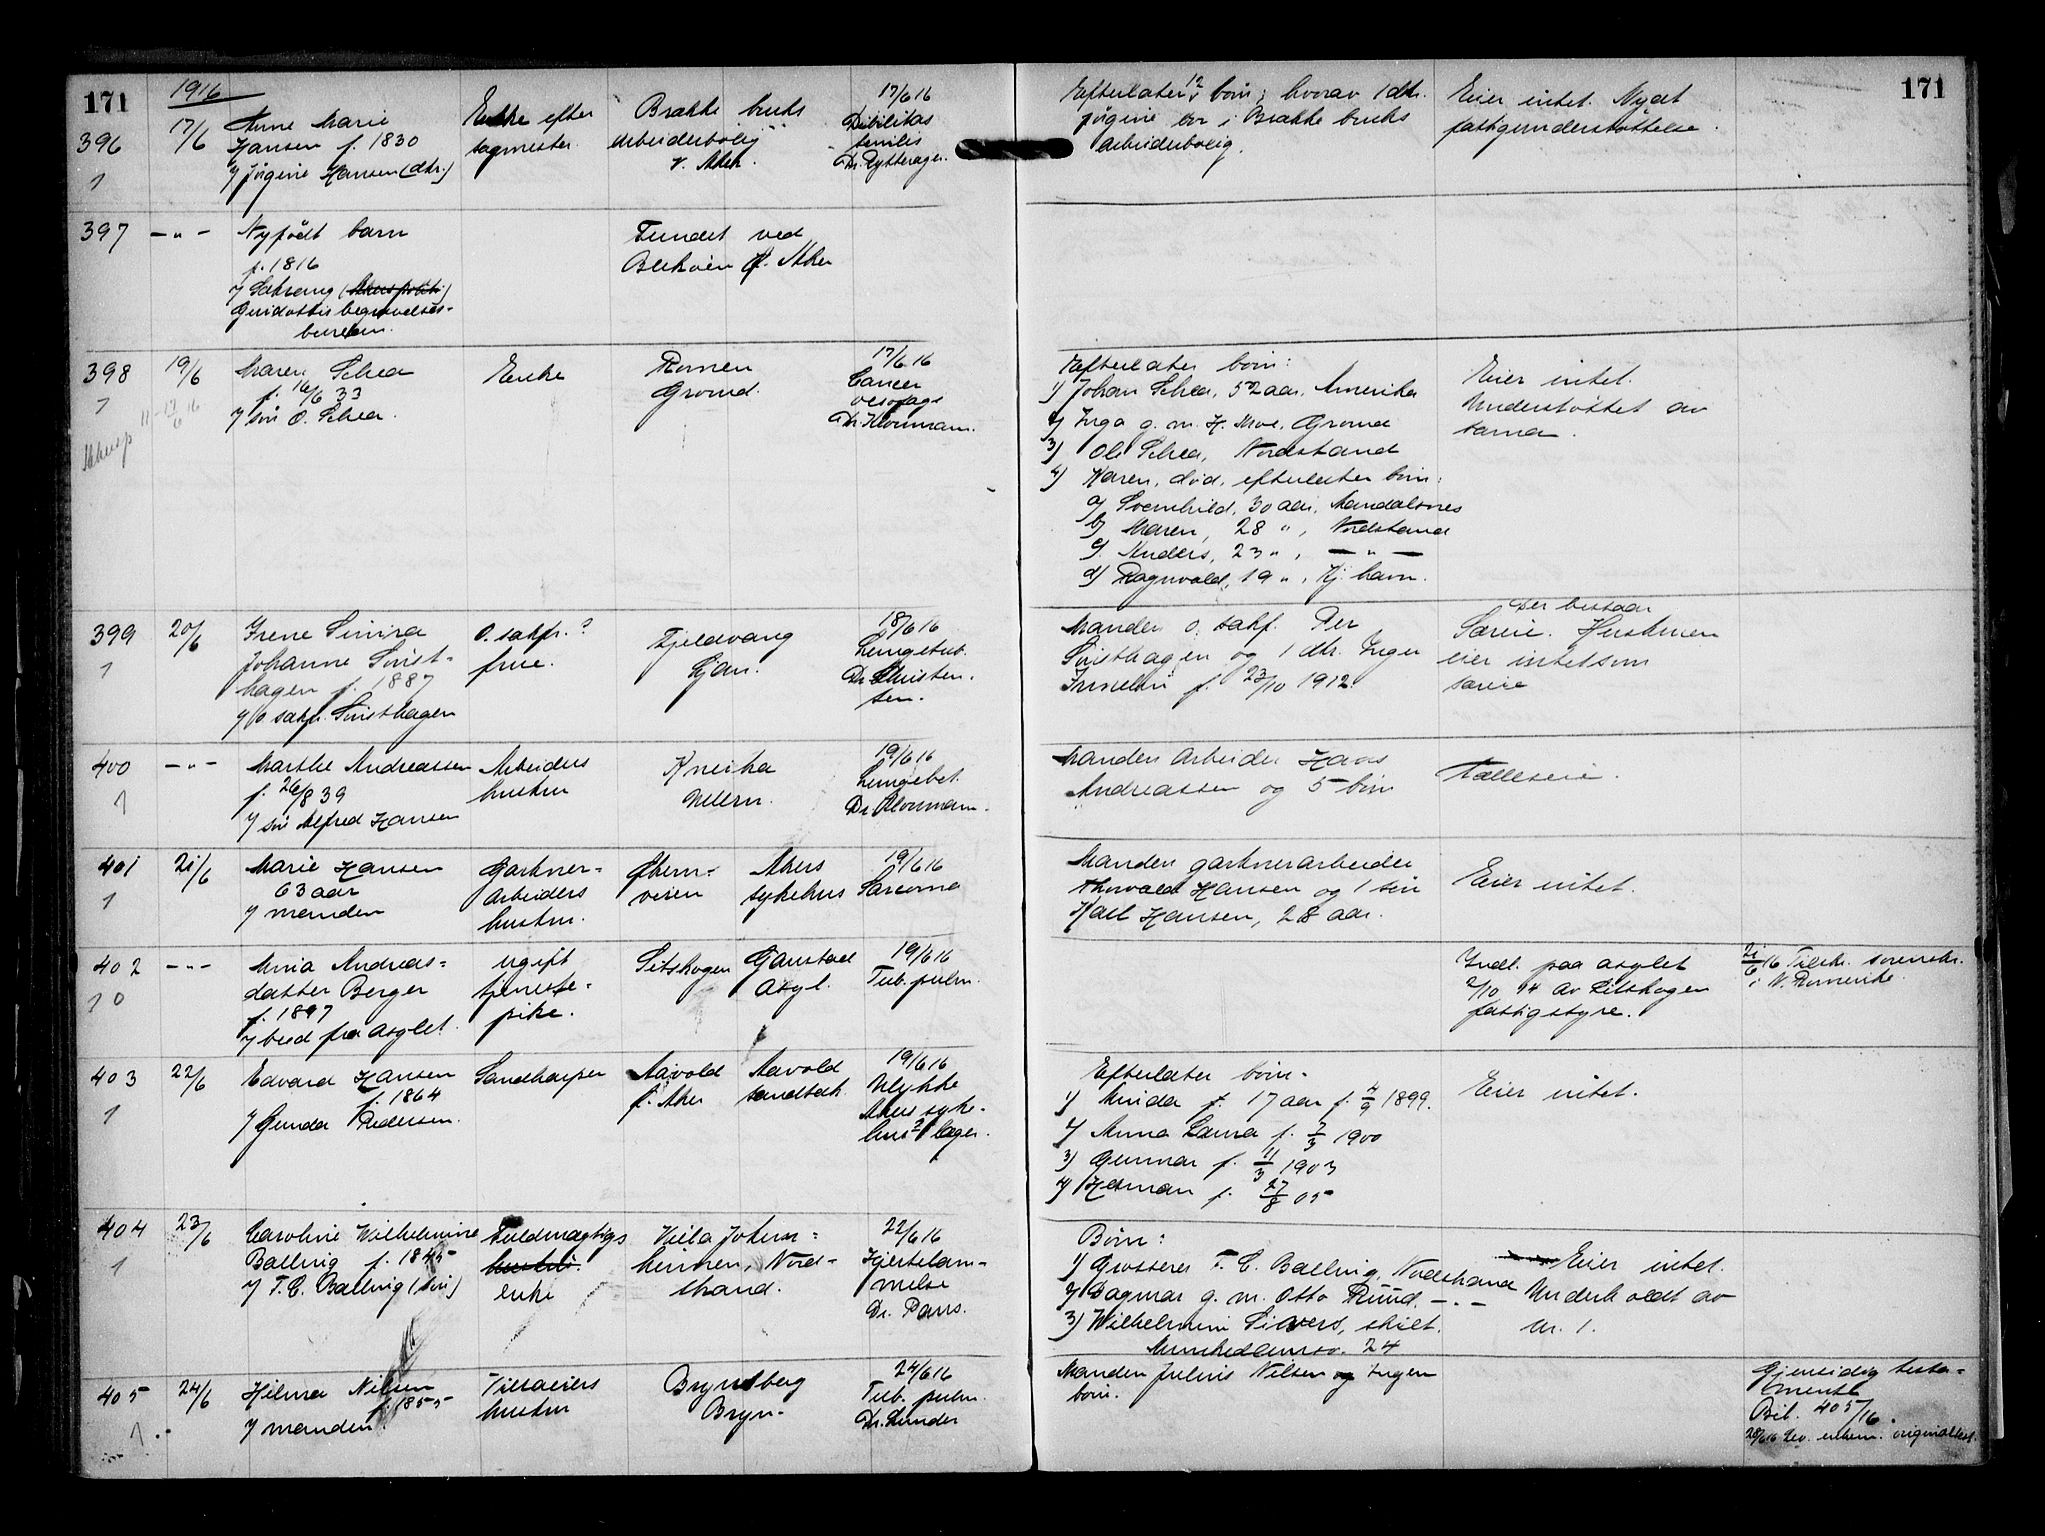 171
1916
396
17/6
Anne Marie
Hansen f. 1830
v/ Jørgine Hansen (dtr.)
Enke efter
sagmester.
Brække bruks
arbeiderbolig
v. Aker.
17/6 16
Debilitas
senilis
Dr. Rytterager.
Efterlater 12 børn, hvorav 1 dtr.
Jørgine bor i Brække bruks
arbeiderbolig.
Eier intet. Nydt
fattigunderstøttelse.
171
1
397
— " —
Nyfødt barn
f. 1916
(Akers politi)
Guidottis begravelses-
bureau.
Fundet ved
V. Aker
398
19/6
Maren Schea
f. 16/6 33
v/ søn O. Schea.
Enke
Romen
Grorud.
17/6 16
Cancer
oesofage
Dr. Klouman.
Efterlater børn:
1) Johan Schea, 52 aar, Amerika
2) Inga g. m. H. Moe, Grorud
3) Ole Schea, Nordstrand
4) Karen, død, efterlater børn:
a) Svernhild, 30 aar, Aandalsnes
b) Maren, 28 " , Nordstrand
c) Anders, 23 " , — " —
d) Ragnvald, 19 " , Kj.havn.
Eier intet.
Understøttet av
barna.
1
11-17/6 16
399
20/6
Irene Simira
Johanne Svist-
hagen f. 1887
v/ O. sakf. Svisthagen
O. sakfr.?
frue.
Fjeldvang
Ljan.
18/6 16
Lungetub.
Dr. Christen-
sen.
Manden o. sakf. Per
Svisthagen og 1 dtr. Inger
f. 23/10 1912.
Der bestaar
Særeie. Hustruen
eier intet som
særeie
1
400
— " —
Marthe Andreassen
f. 26/8 39
v/ søn Alfred Hansen
Arbeiders
hustru
Kneika
Ullern.
19/6 16
Lungebet.
Dr. Klouman.
Manden arbeider Hans
Andreassen og 5 børn
Fælleseie.
1
401
21/6
Marie Hansen
63 aar
v/ manden
Gartner-
arbeiders
hustru.
Økern-
veien
Akers
sykehus
19/6 16
Sarcoma
Manden gartnerarbeider
Thorvald Hansen og 1 søn
Karl Hansen, 28 aar.
Eier intet.
1
402
— " —
Mina Andreas-
datter Berger
f. 1897
v/ bud fra asylet.
ugift
tjeneste-
pike.
Sitskogen
Gaustad
Asyl.
19/6 16
Tub. pulm.
Indl. paa asylet
2/10 14 av Sitskogen
fattigstyre.
21/6 16 Tilskr. sorenskr.
i N. Romerike
10
403
22/6
Edvard Hansen
f. 1864
v/ Gunda Pedersen.
Sandkjører
Aavold
V. Aker
Aavold
sandtak
19/6 16
Ulykke
Akers syke-
hus' læger.
Efterlater børn:
1) 17 aar f. 4/9 1899.
2) Anna Laura f. 7/3 1900
3) Gunnar f. 11/3 1903
4) Herman f. 27/8 05
Eier intet.
1
404
23/6
Caroline Wilhelmine
Balling f. 1845
v/ F. C. Balling (søn)
Fuldmægtigs
hustru.
enke
Villa Johan-
heimen, Nord-
strand.
22/6 16
Hjertelam-
melse
Dr. Paus.
Børn:
1) Grosserer F. C. Balling, Nordstrand
2) Dagmar g. m. Otto Ruud, — " —
3) Wilhelmine Sievers, skilt.
Munkedamsv. 24
Eier intet.
Underholdt av
nr. 1.
1
405
24/6
Hilma Nilsen
f. 1855
v/ manden.
Villaeiers
hustru
Brynsberg
Bryn.
24/6 16
Tub. pulm.
Manden Julius Nilsen og Ingen
børn.
Gjensidig testa-
mente
Bil. 405/16.
28/6 16 Lev. enkem. originaltest.
1